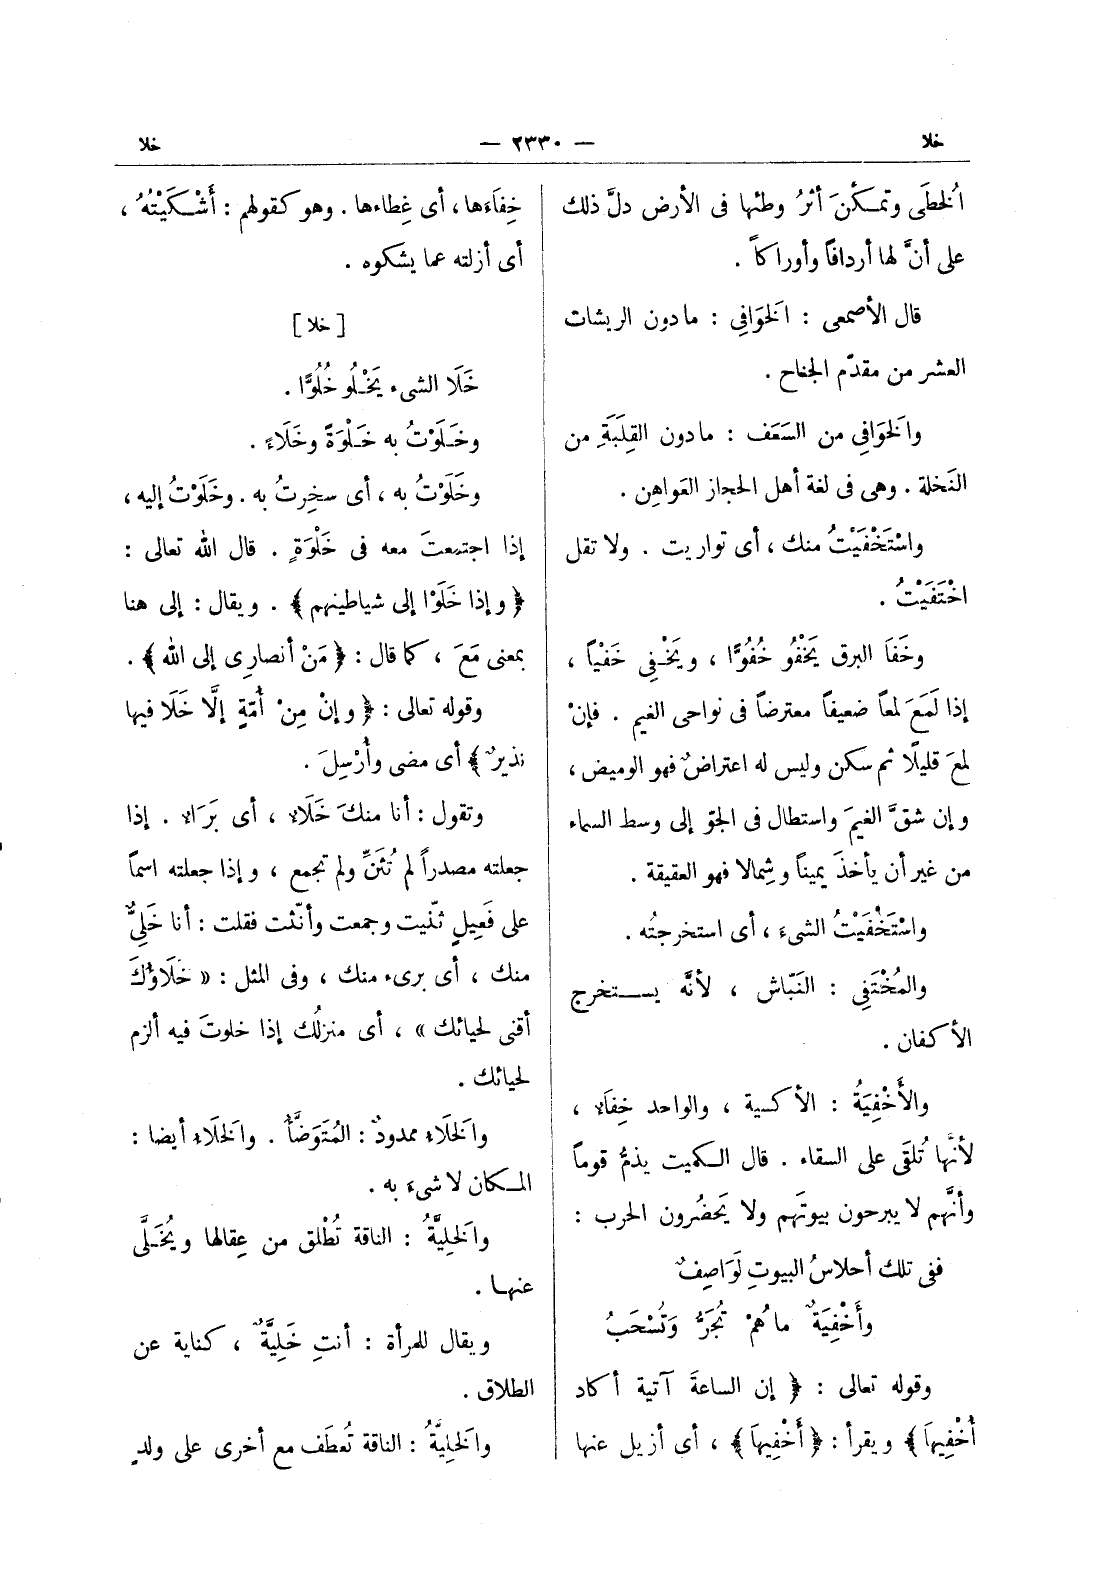 خلا
— ٢٣٣٠ —
خلا
الخُطَى وتمكّنَ أثرُ وطئها فى الأرض دلَّ ذلك
على أنَّ لها أردافاً وأوراكاً .
قال الأصمعى : الخَوَافِى : مادون الريشات
العشر من مقدّم الجناح .
والخَوَافِى من السَعَف : مادون القِلَبَةِ من
النَخلة . وهى فى لغة أهل الحجاز العَواهِن .
واسْتَخْفَيْتُ منك ، أى تواريت . ولا تقل
اخْتَفَيْتُ .
وخَفَا البرق يَخْفُو خُفُوًّا ، ويَخْفِى خَفْياً ،
إذا لَمَعَ لمعاً ضعيفاً معترضاً فى نواحى الغيم . فإنْ
لمعَ قليلًا ثم سكن وليس له اعتراضٌ فهو الوميض ،
وإن شقَّ الغيمَ واستطال فى الجوّ إلى وسط السماء
من غير أن يأخذَ يميناً وشِمالا فهو العقيقة .
واسْتَخْفَيْتُ الشىءَ ، أى استخرجتُه .
والمُخْتَفِى : النَبّاش ، لأنَّه يستخرج
الأكفان .
والأَخْفِيَةُ : الأكسية ، والواحد خِفَاءٌ ،
لأنَّها تُلقَى على السقاء . قال الكميت يذمُّ قوماً
وأنَّهم لا يبرحون بيوتَهم ولا يَحضُرون الحرب :
ففى تلك أحلاسُ البيوتِ لَوَاصِفٌ
وأَخْفِيَةٌ ماهُمْ تُجَرُّ وَتُسْحَبُ
وقوله تعالى : ﴿ إن الساعةَ آتية أكاد
أُخْفِيهَا ﴾ ويقرأ : ﴿ أَخْفِيهَا ﴾ ، أى أزيل عنها
خِفَاءَها ، أى غِطاءها . وهو كقولهم : أَشْكَيْتُهُ ،
أى أزلته عما يشكوه .
[ خلا ]
خَلَا الشىء يَخْلُو خُلُوًّا .
وخَلَوْتُ به خَلْوَةً وخَلَاءً .
وخَلَوْتُ به ، أى سخِرتُ به . وخَلَوْتُ إليه ،
إذا اجتمعتَ معه فى خَلْوَةٍ . قال الله تعالى :
﴿ وإذا خَلَوْا إلى شياطينهم ﴾ . ويقال : إلى هنا
بمعنى مَعَ ، كما قال : ﴿ مَنْ أنصارِى إلى الله ﴾ .
وقوله تعالى : ﴿ وإنْ مِنْ أُمّةٍ إلَّا خَلَا فيها
نذيرٌ ﴾ أى مضى وأُرْسِلَ .
وتقول : أنا منكَ خَلَاءٌ ، أى بَرَاءٌ . إذا
جعلته مصدراً لم تُثَنِّ ولم تجمع ، وإذا جعلته اسماً
على فَعِيلٍ ثنّيت وجمعت وأنّثت فقلت : أنا خَلِىٌّ
منك ، أى برىء منك ، وفى المثل : « خَلَاؤُكَ
أقنى لحيائك » ، أى منزلُك إذا خلوتَ فيه ألزم
لحيائك .
والخَلَاء ممدودٌ : المُتَوَضَّأُ . والخَلَاء أيضا :
المكان لا شىءَ به .
والخَلِيَّةُ : الناقة تُطْلق من عِقالها ويُخَلَّى
عنها .
ويقال للمرأة : أنتِ خَلِيَّةٌ ، كناية عن
الطلاق .
والخَلِيَّةُ : الناقة تُعطَف مع أخرى على ولدٍ